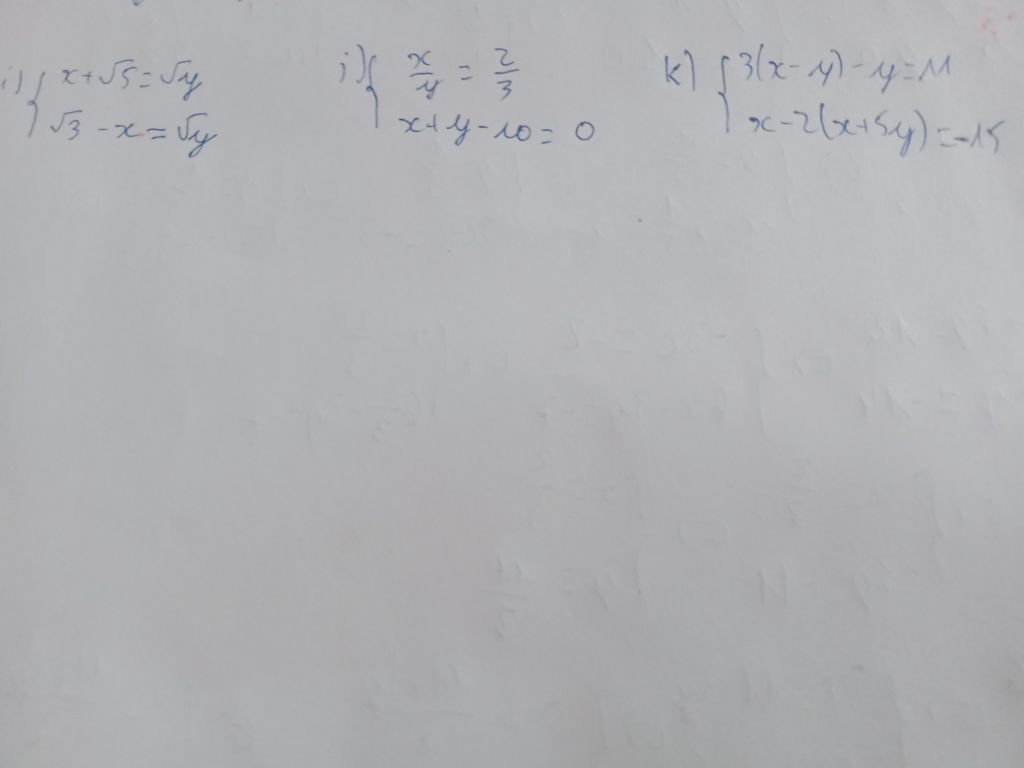 i) { x + √5 = √y
√3 - x = √y
j) { x/y = 2/3
x + y - 10 = 0
k) { 3(x - y) - y = 11
x - 2(x + 5y) = -15